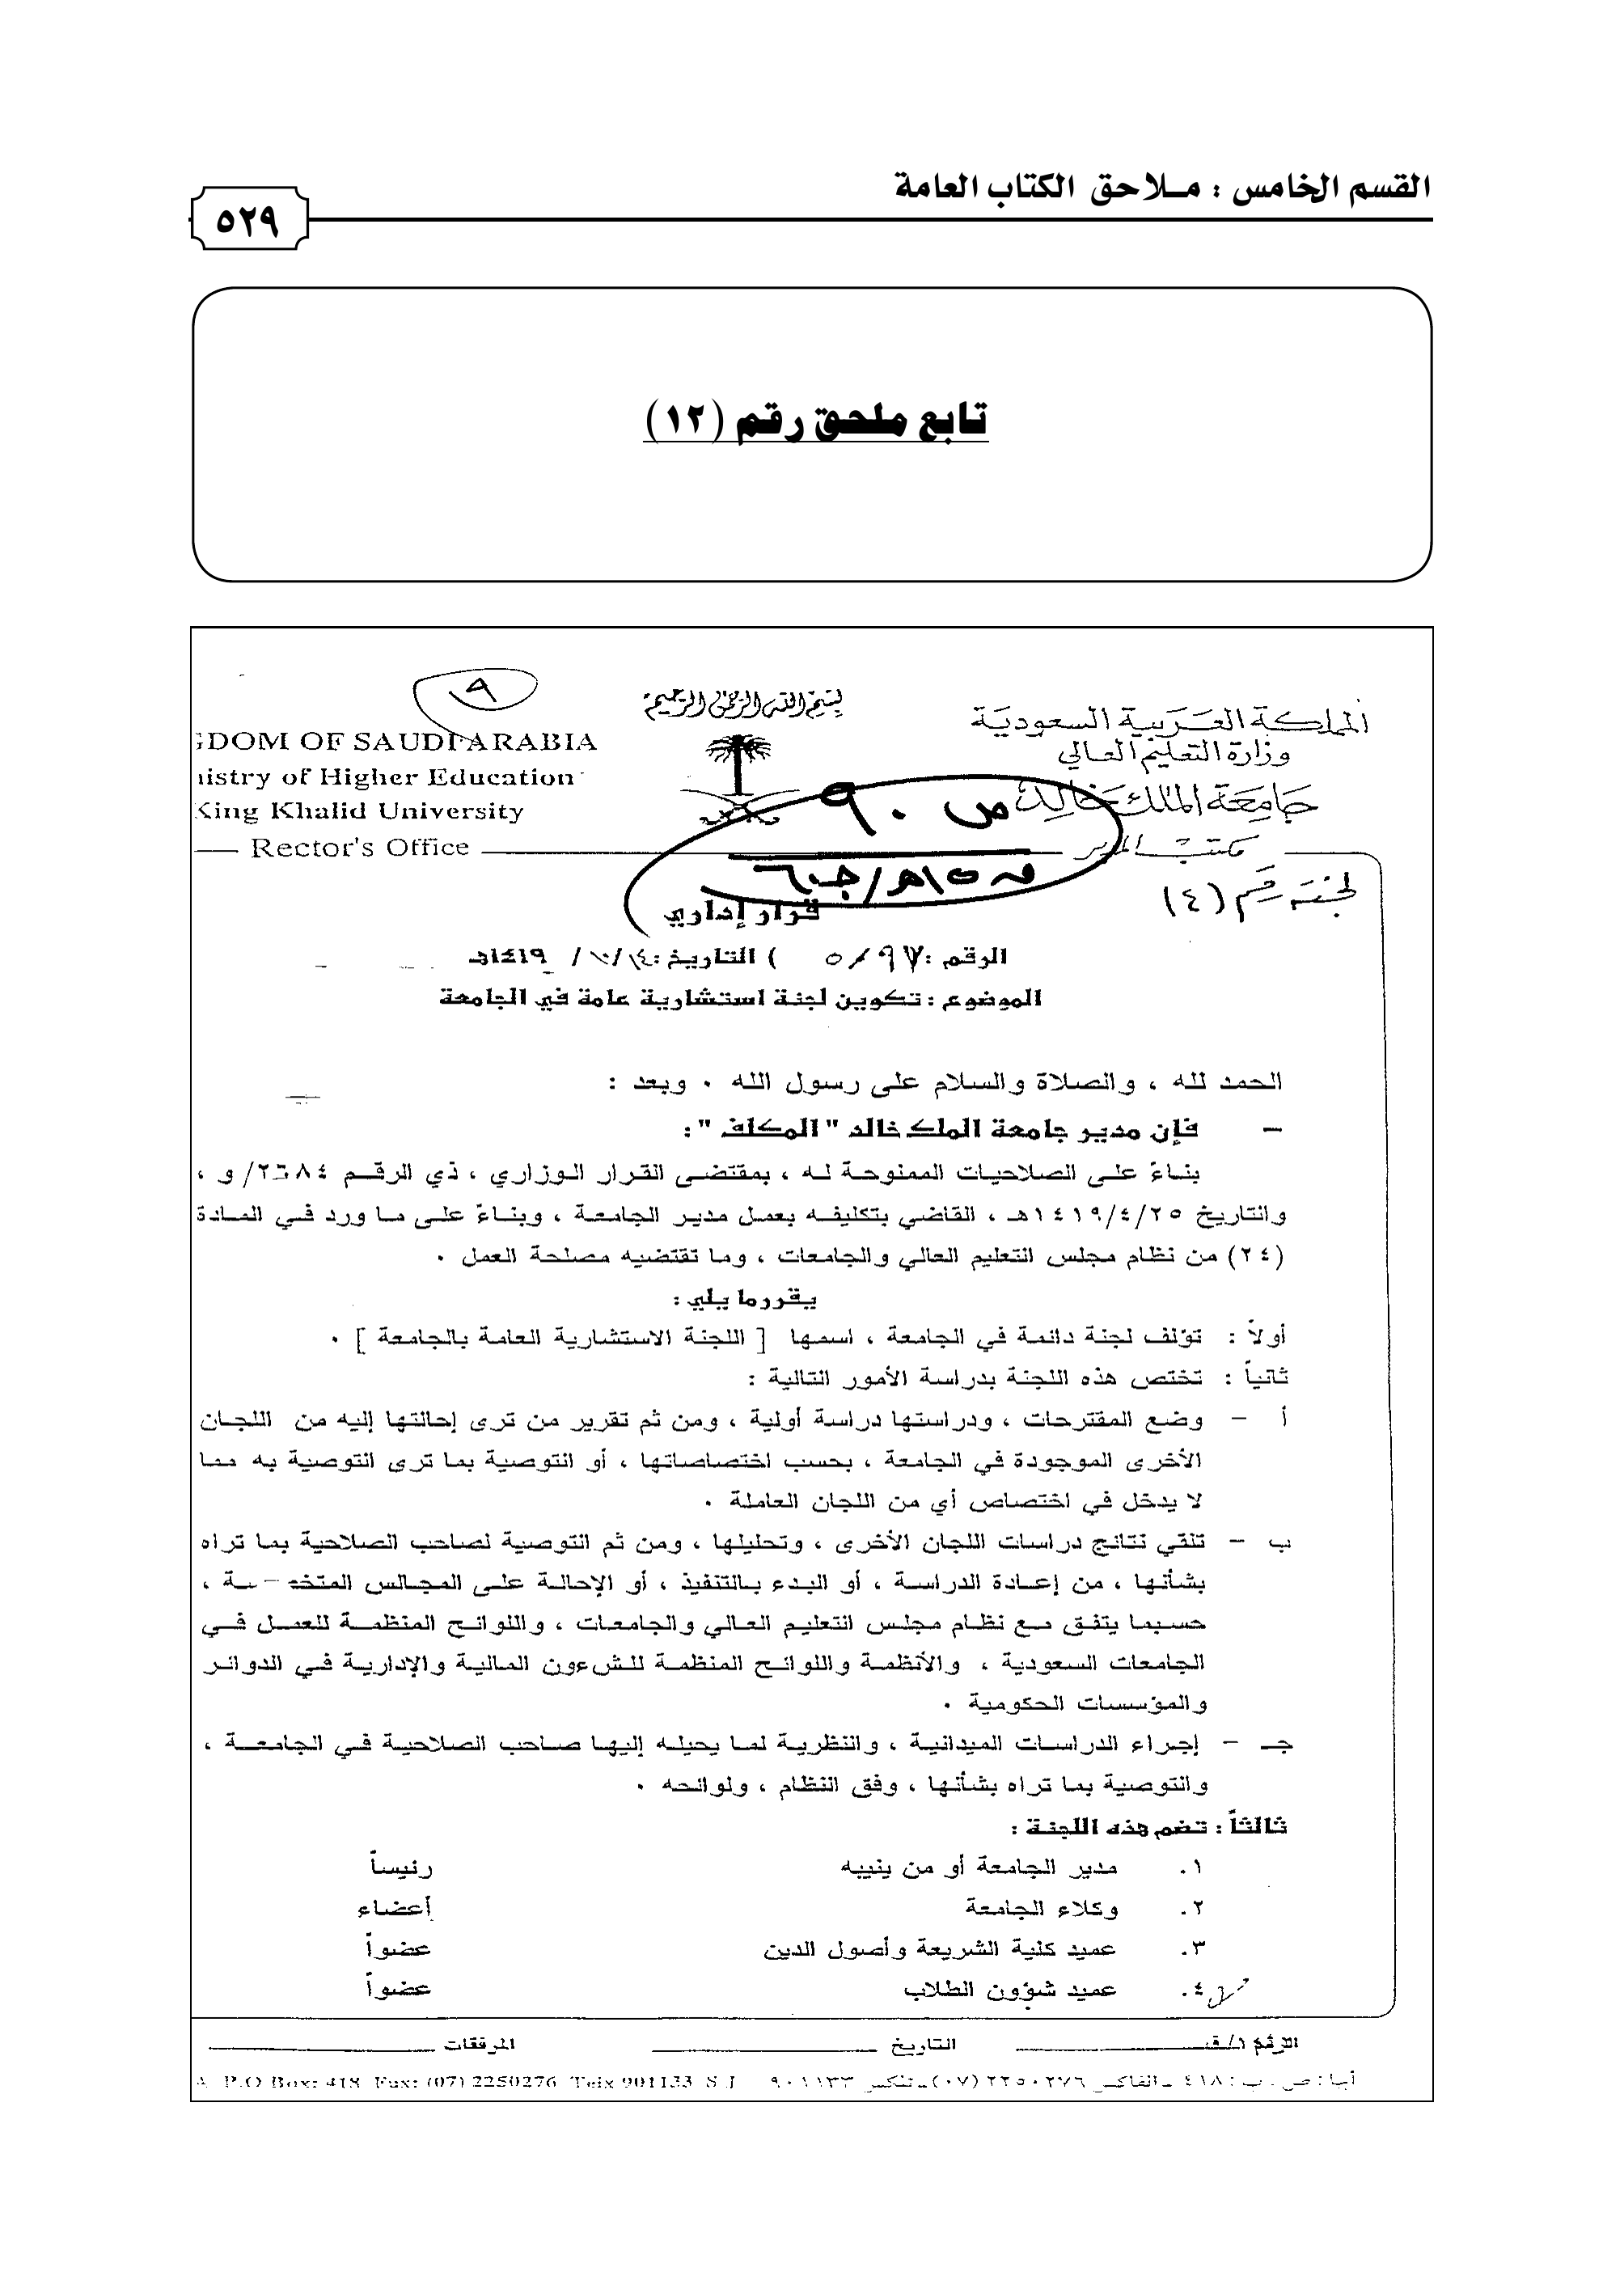 القسم الخامس : ملاحق الكتاب العامة
٥٢٩
تابع ملحق رقم (١٢)
٩
بسم الله الرحمن الرحيم
المملكة العربية السعودية
وزارة التعليم العالي
جامعة الملك خالد
مكتب المدير
GDOM OF SAUDI ARABIA
nistry of Higher Education
King Khalid University
Rector's Office
ص ٩٠
لجنة رقم (٤)
قرار إداري
الرقم : ٥/٩٧ ) التاريخ : ١٤١٩هـ
الموضوع : تكوين لجنة استشارية عامة في الجامعة
الحمد لله ، والصلاة والسلام على رسول الله . وبعد :
– فإن مدير جامعة الملك خالد " المكلف " :
بناءً على الصلاحيات الممنوحة له ، بمقتضى القرار الوزاري ، ذي الرقم ٢٦٨٤/ و ،
والتاريخ ١٤١٩/٤/٢٥هـ ، القاضي بتكليفه بعمل مدير الجامعة ، وبناءً على ما ورد في المادة
(٢٤) من نظام مجلس التعليم العالي والجامعات ، وما تقتضيه مصلحة العمل .
يقرر ما يلي :
أولاً : تؤلف لجنة دائمة في الجامعة ، اسمها [ اللجنة الاستشارية العامة بالجامعة ] .
ثانياً : تختص هذه اللجنة بدراسة الأمور التالية :
أ – وضع المقترحات ، ودراستها دراسة أولية ، ومن ثم تقرير من ترى إحالتها إليه من اللجان
الأخرى الموجودة في الجامعة ، بحسب اختصاصاتها ، أو التوصية بما ترى التوصية به مما
لا يدخل في اختصاص أي من اللجان العاملة .
ب – تلقي نتائج دراسات اللجان الأخرى ، وتحليلها ، ومن ثم التوصية لصاحب الصلاحية بما تراه
بشأنها ، من إعادة الدراسة ، أو البدء بالتنفيذ ، أو الإحالة على المجالس المتخصصة ،
حسبما يتفق مع نظام مجلس التعليم العالي والجامعات ، واللوائح المنظمة للعمل في
الجامعات السعودية ، والأنظمة واللوائح المنظمة للشءون المالية والإدارية في الدوائر
والمؤسسات الحكومية .
جـ – إجراء الدراسات الميدانية ، والنظرية لما يحيله إليها صاحب الصلاحية في الجامعة ،
والتوصية بما تراه بشأنها ، وفق النظام ، ولوائحه .
ثالثاً : تضم هذه اللجنة :
١. مدير الجامعة أو من ينيبه رئيساً
٢. وكلاء الجامعة أعضاء
٣. عميد كلية الشريعة وأصول الدين عضواً
٤. عميد شؤون الطلاب عضواً
الرقم التاريخ المرفقات
أبها : ص . ب : ٤١٨ ـ الفاكس ٢٢٥٠٢٧٦ (٠٧) ـ تلكس ٩٠١١٣٣
A P.O Box: 418 Fax: (07) 2250276 Telx 901133 S J